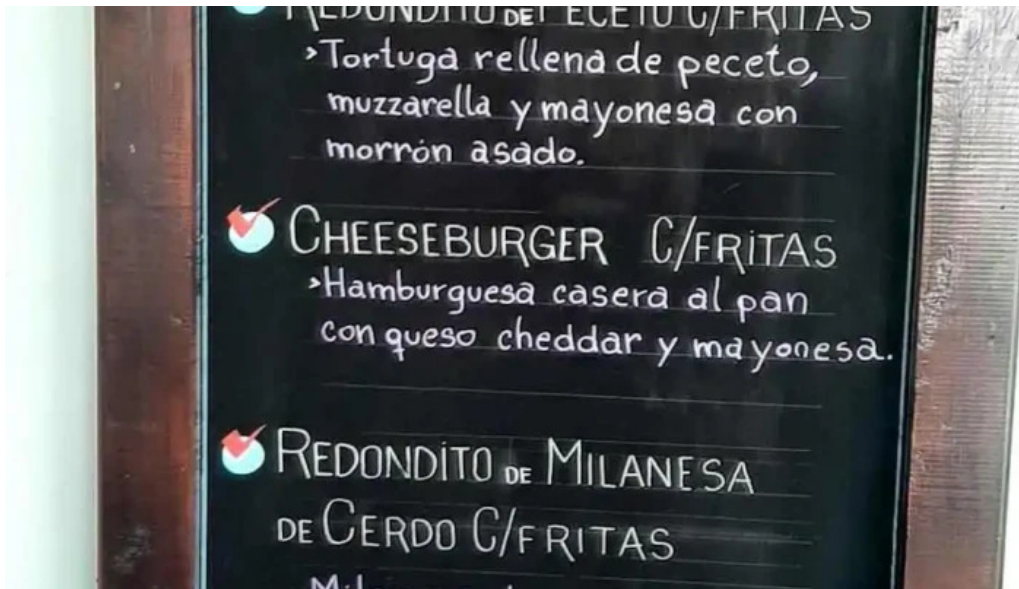 REDONDITO DE PECETO C/FRITAS
>Tortuga rellena de peceto,
muzzarella y mayonesa con
morrón asado.
CHEESEBURGER C/FRITAS
>Hamburguesa casera al pan
con queso cheddar y mayonesa.
REDONDITO DE MILANESA
DE CERDO C/FRITAS